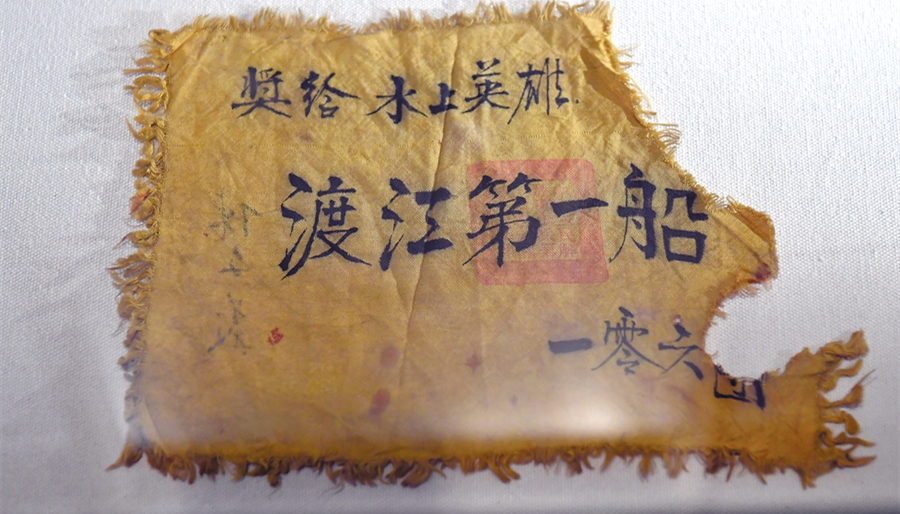 奨给 水上英雄
渡江第一船
一零六团